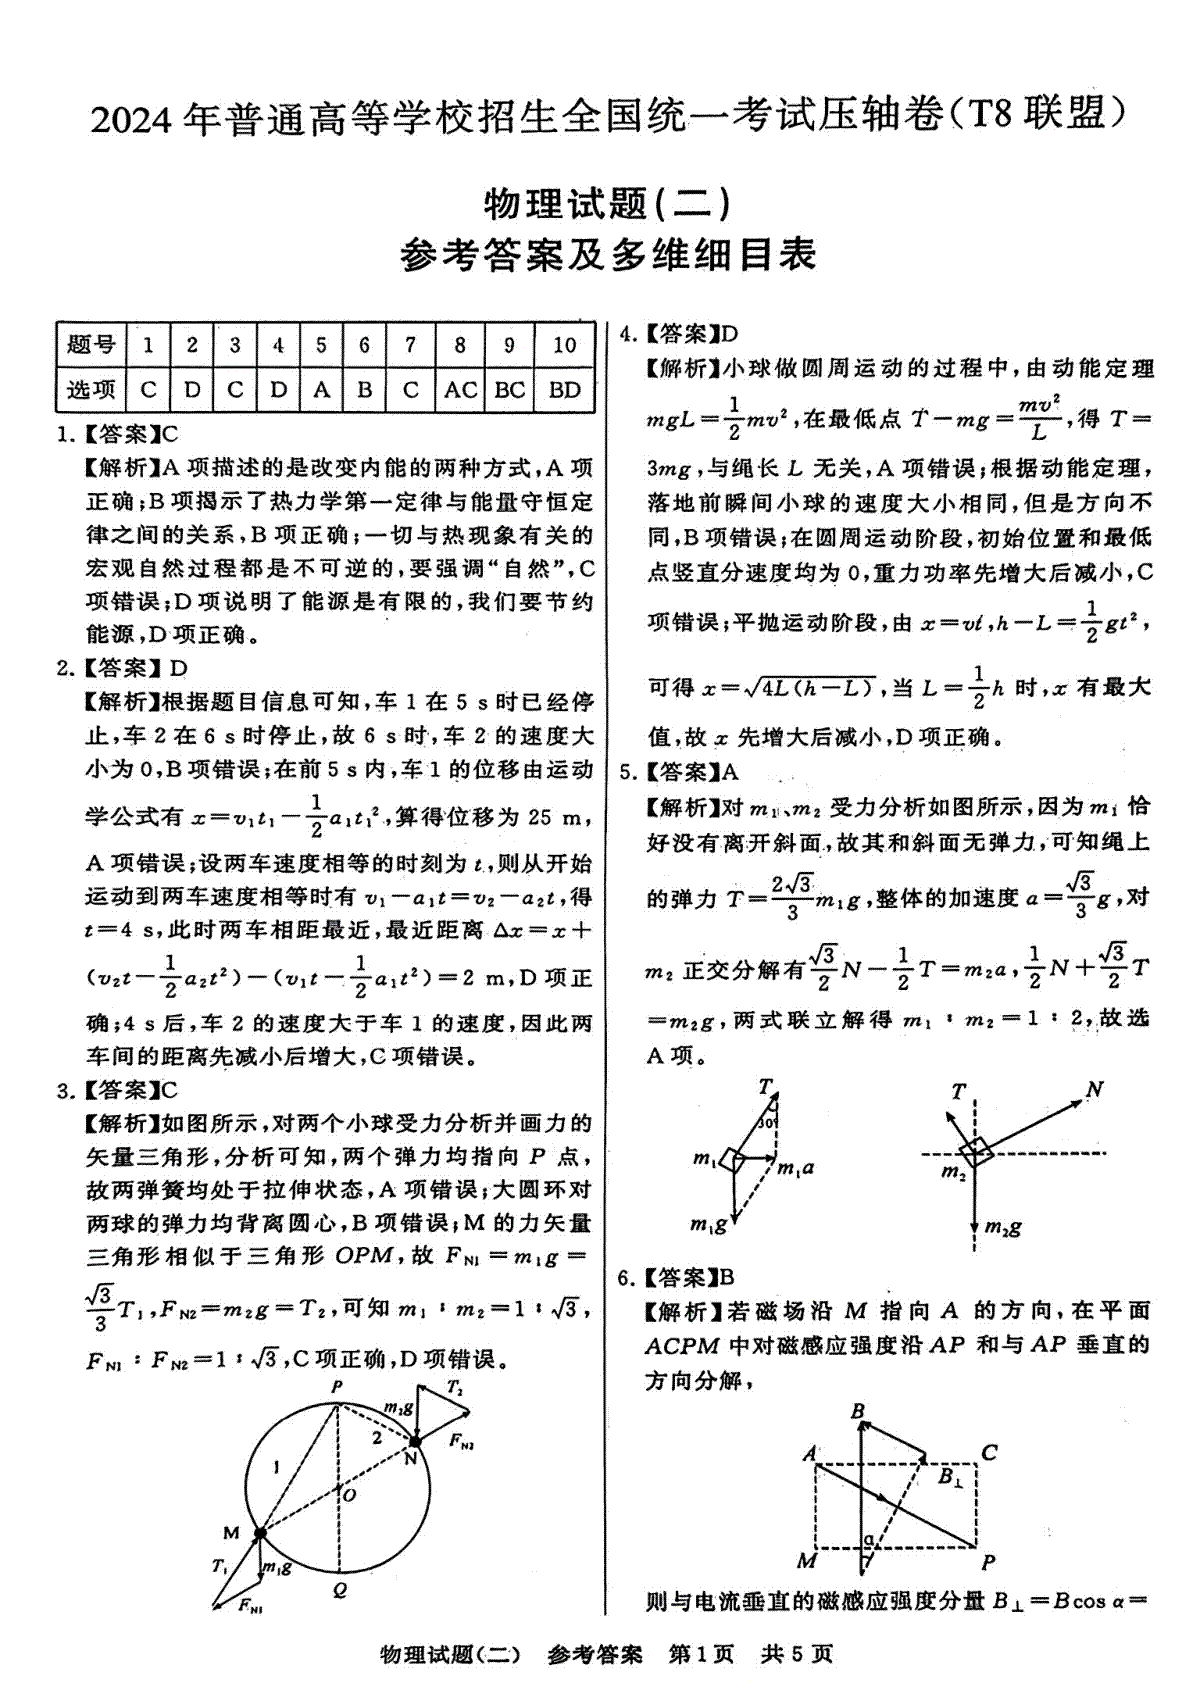 2024年普通高等学校招生全国统一考试压轴卷(T8联盟)
物理试题(二)
参考答案及多维细目表
题号 1 2 3 4 5 6 7 8 9 10
选项 C D C D A B C AC BC BD
1.【答案】C
【解析】A项描述的是改变内能的两种方式,A项
正确;B项揭示了热力学第一定律与能量守恒定
律之间的关系,B项正确;一切与热现象有关的
宏观自然过程都是不可逆的,要强调“自然”,C
项错误;D项说明了能源是有限的,我们要节约
能源,D项正确。
2.【答案】D
【解析】根据题目信息可知,车1在5 s时已经停
止,车2在6 s时停止,故6 s时,车2的速度大
小为0,B项错误;在前5 s内,车1的位移由运动
学公式有 x=v₁t₁-\frac{1}{2}a₁t₁²,算得位移为25 m,
A项错误;设两车速度相等的时刻为t,则从开始
运动到两车速度相等时有 v₁-a₁t=v₂-a₂t,得
t=4 s,此时两车相距最近,最近距离 Δx=x+
(v₂t-\frac{1}{2}a₂t²)-(v₁t-\frac{1}{2}a₁t²)=2 m,D项正
确;4 s后,车2的速度大于车1的速度,因此两
车间的距离先减小后增大,C项错误。
3.【答案】C
【解析】如图所示,对两个小球受力分析并画力的
矢量三角形,分析可知,两个弹力均指向P点,
故两弹簧均处于拉伸状态,A项错误;大圆环对
两球的弹力均背离圆心,B项错误;M的力矢量
三角形相似于三角形OPM,故 F_{N1}=m₁g=
\frac{√3}{3}T₁,F_{N2}=m₂g=T₂,可知 m₁:m₂=1:√3,
F_{N1}:F_{N2}=1:√3,C项正确,D项错误。
P T₂
m₂g
2 F_{N2}
N
1
O
M
T₁ m₁g
F_{N1} Q
4.【答案】D
【解析】小球做圆周运动的过程中,由动能定理
mgL=\frac{1}{2}mv²,在最低点 T-mg=\frac{mv²}{L},得 T=
3mg,与绳长L无关,A项错误;根据动能定理,
落地前瞬间小球的速度大小相同,但是方向不
同,B项错误;在圆周运动阶段,初始位置和最低
点竖直分速度均为0,重力功率先增大后减小,C
项错误;平抛运动阶段,由 x=vt,h-L=\frac{1}{2}gt²,
可得 x=√(4L(h-L)),当 L=\frac{1}{2}h 时,x有最大
值,故x先增大后减小,D项正确。
5.【答案】A
【解析】对m₁、m₂受力分析如图所示,因为m₁恰
好没有离开斜面,故其和斜面无弹力,可知绳上
的弹力 T=\frac{2√3}{3}m₁g,整体的加速度 a=\frac{√3}{3}g,对
m₂正交分解有\frac{√3}{2}N-\frac{1}{2}T=m₂a,\frac{1}{2}N+\frac{√3}{2}T
=m₂g,两式联立解得 m₁:m₂=1:2,故选
A项。
T T N
30°
m₁ m₁a m₂
m₁g m₂g
6.【答案】B
【解析】若磁场沿M指向A的方向,在平面
ACPM中对磁感应强度沿AP和与AP垂直的
方向分解,
B
A C
B⊥
α
M P
则与电流垂直的磁感应强度分量 B⊥=Bcos α=
物理试题(二) 参考答案 第1页 共5页